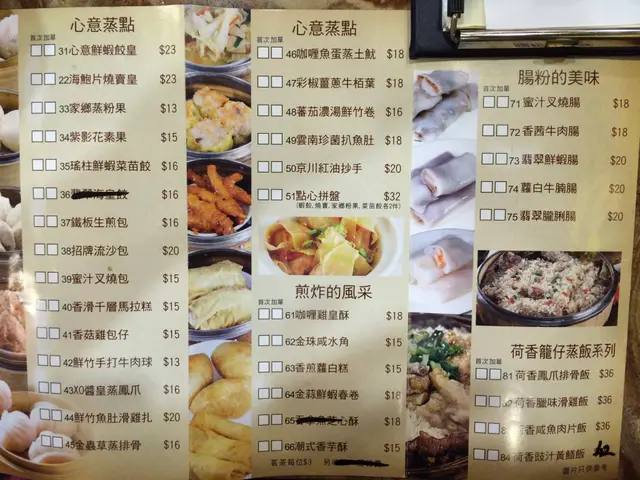 心意蒸點
首次 加單
31心意鮮蝦餃皇 $23
22海鮑片燒賣皇 $23
33家鄉蒸粉果 $13
34紫影花素果 $15
35瑤柱鮮蝦菜苗餃 $16
36 $16
37鐵板生煎包 $16
38招牌流沙包 $20
39蜜汁叉燒包 $15
40香滑千層馬拉糕 $15
41香菇雞包仔 $15
42鮮竹手打牛肉球 $13
43XO醬皇蒸鳳爪 $16
44鮮竹魚肚滑雞扎 $20
45金蟲草蒸排骨 $16
心意蒸點
首次 加單
46咖喱魚蛋蒸土魷 $18
47彩椒薑蔥牛栢葉 $18
48番茄濃湯鮮竹卷 $16
49雲南珍菌扒魚肚 $18
50京川紅油抄手 $20
51點心拼盤 $32
(蝦餃,燒賣,家鄉粉果,菜苗餃各2件)
煎炸的風采
首次 加單
61咖喱雞皇酥 $18
62金珠咸水角 $15
63香煎蘿白糕 $15
64金蒜鮮蝦春卷 $18
65 心酥 $18
66潮式香芋酥 $15
茗茶每位$3 另
腸粉的美味
首次 加單
71 蜜汁叉燒腸 $18
72 香茜牛肉腸 $18
73 翡翠鮮蝦腸 $20
74 蘿白牛腩腸 $20
75 翡翠朧脷腸 $20
荷香籠仔蒸飯系列
首次 加單
81 荷香鳳爪排骨飯 $36
荷香臘味滑雞飯 $36
荷香咸魚肉片飯 $36
84 荷香豉汁黃鱔飯
圖片只供參考